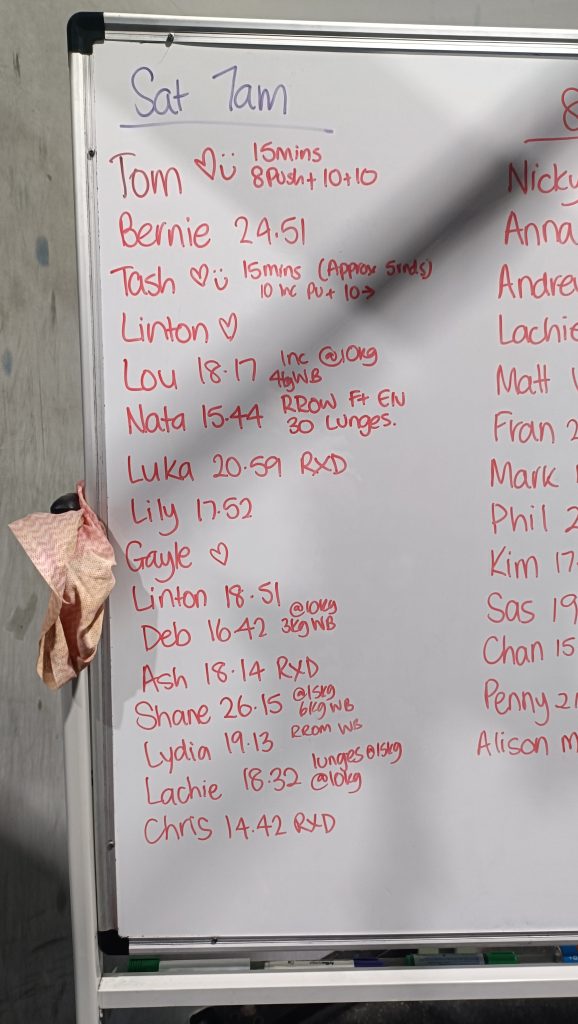 Sat 7am
Tom ♡ ü 15mins
8 Push + 10 + 10
Bernie 24.51
Tash ♡ ü 15mins (Approx 5rnds)
10 inc PU + 10→
Linton ♡
Lou 18.17 Inc @10kg
4kg WB
Nata 15.44 RROW Ft EN
30 Lunges.
Luka 20.59 RXD
Lily 17.52
Gayle ♡
Linton 18.51
Deb 16.42 @10kg
3kg WB
Ash 18.14 RXD
Shane 26.15 @15kg
6kg WB
Lydia 19.13 RROM WB
Lachie 18.32 lunges @15kg
@10kg
Chris 14.42 RXD
8
Nicky
Anna
Andre
Lachie
Matt
Fran 2
Mark
Phil 2
Kim 17.
Sas 19
Chan 15
Penny 2
Alison M